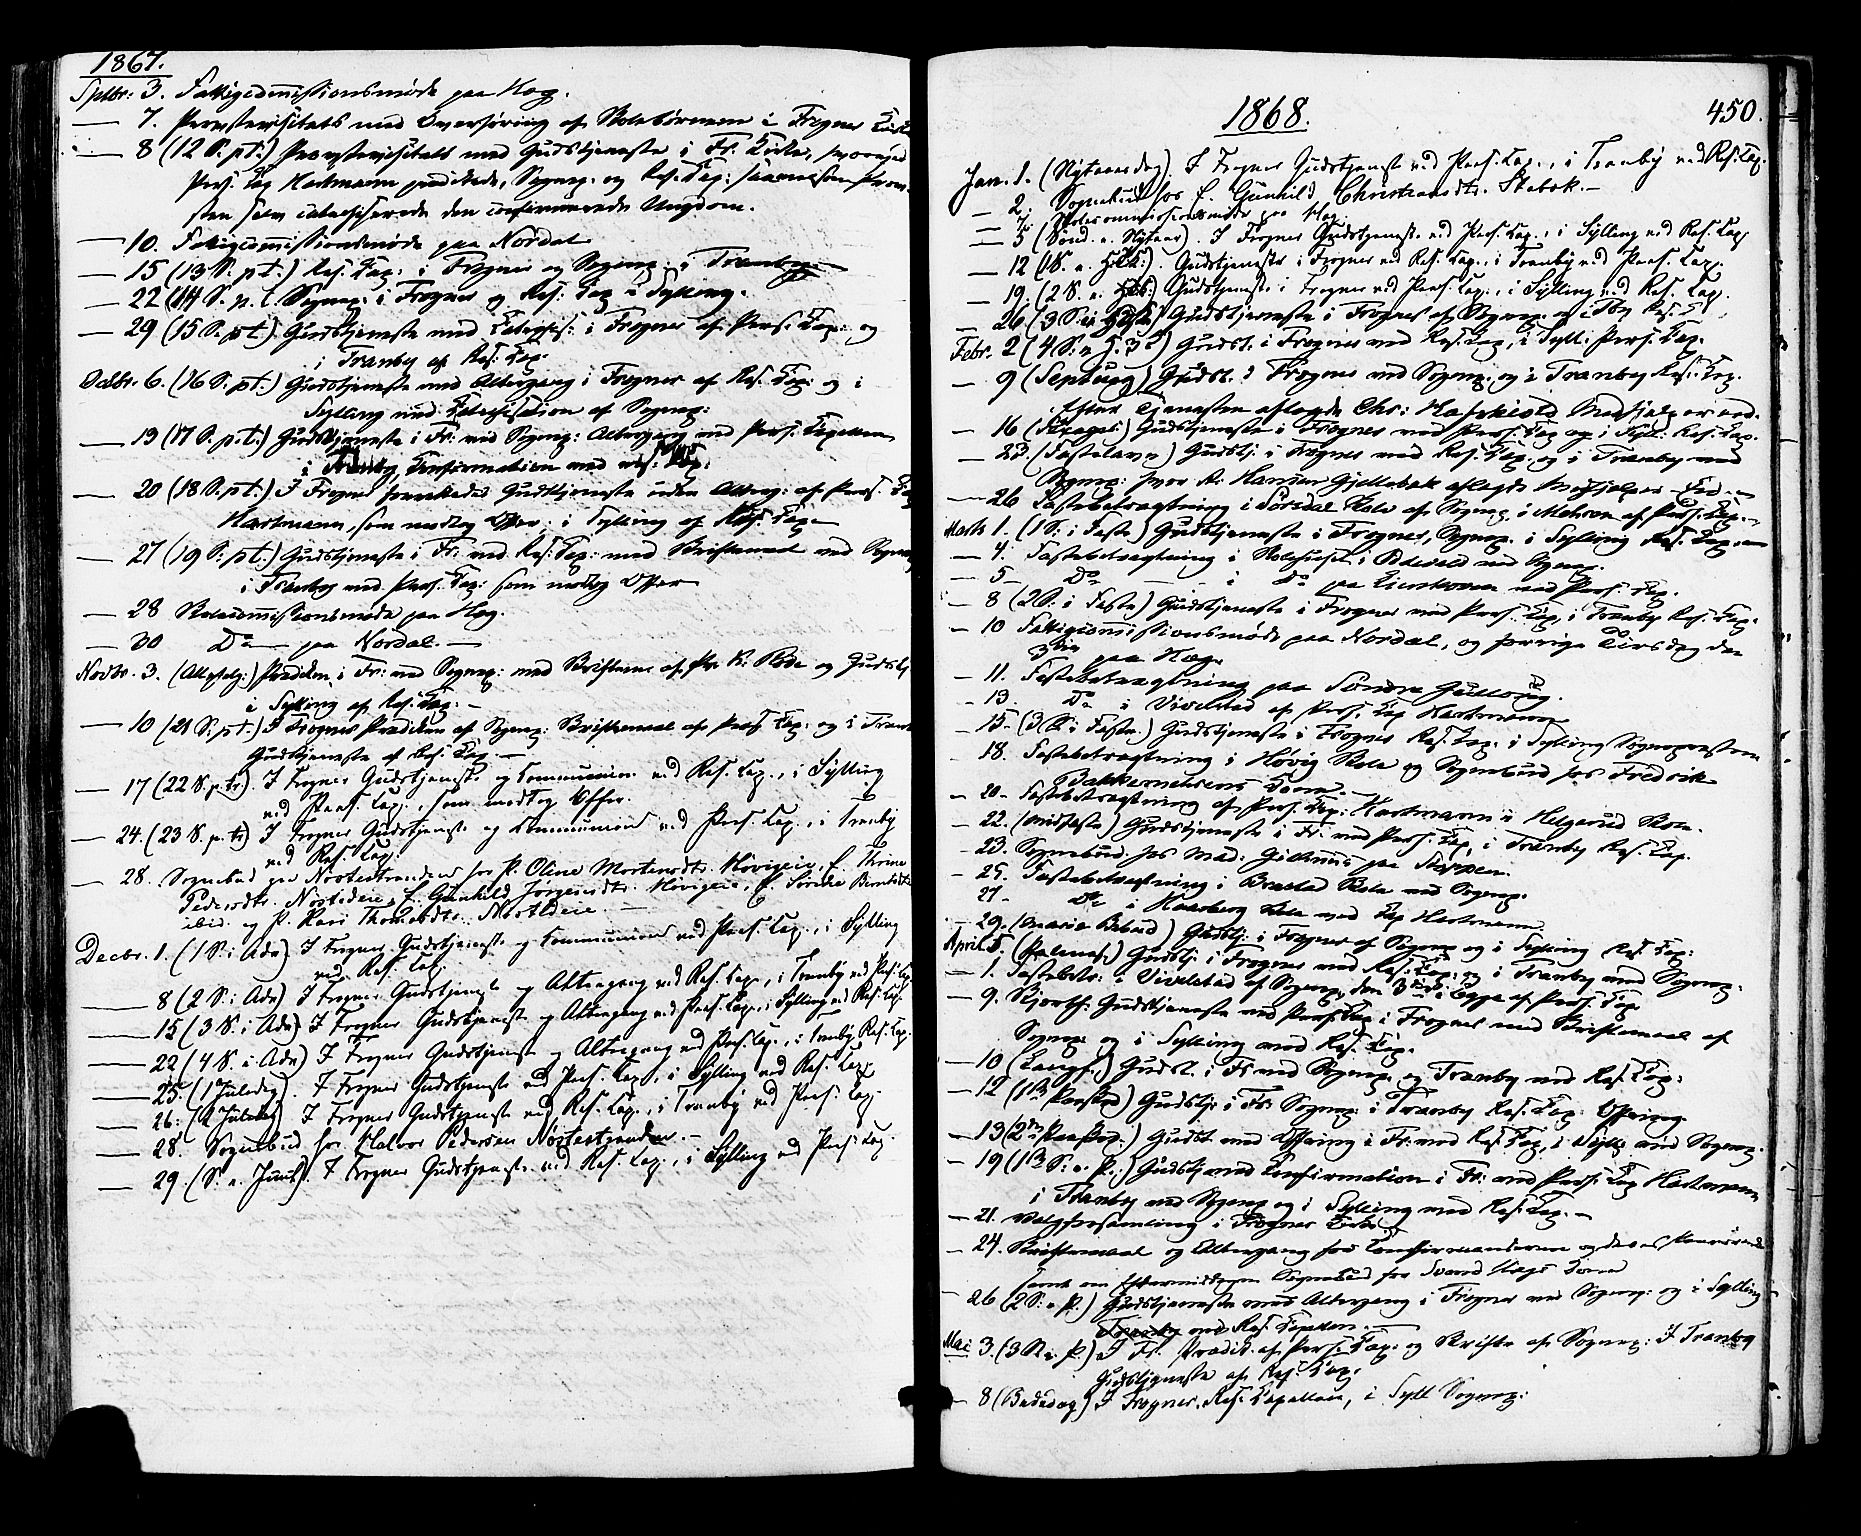 1867.
Septbr: 3. Fattigcommissionsmøde paa Hag.
— 7. Provstevisitats med Overhøring af Skolebørnene i Frogner Kirke
— 8 (12 S. p. t.) Provstevisitats med Gudstjeneste i Fr. Kirke, hvorved
Pers. Cap Hartmann prædikede, Sognep. og Res. Cap: saavelsom Prov-
sten selv catechiserede den confirmerede Ungdom.
— 10. Fattigcommissionsmøde paa Nordal
— 15 (13 S. p. t.) Res. Cap. i Frogner og Sognep. i Tranby.
— 22 (14 S. p. t. Sognep. i Frogner og Res: Cap i Sylling.
— 29 (15 S. p. t.) Gudstjeneste med Catechis: i Frogner af Pers: Cap: og
i Tranby af Res. Cap.
Octbr. 6. (16 S. p. t.) Gudstjeneste med Altergang i Frogner af Res. Cap: og i
Sylling med Catechisation af Sognep:
— 13 (17 S. p. t.) Gudstjeneste i Fr: ved Sognep: Altergang ved Pers. Capellan
i Tranby Confirmation ved res: Cap:
— 20 (18 S. p. t.) I Frogner forrettedes Gudstjeneste uden Alterg: af Pers. Cap
Hartmann, som modtog Offer. i Sylling af Res. Cap.
— 27 (19 S. p. t.) Gudstjeneste i Fr: ved Res. Cap: med Skriftemaal ved Sognep
i Tranby ved Pers. Cap: som modtog Offer
— 28 Skolecommissionsmøde paa Hag.
— 30 Do paa Nordal. —
Novbr. 3. (Allehelg:) Prædiken i Fr: ved Sognep: med Skriftem: af og Gudstj
i Sylling af Res. Cap. —
— 10 (21 S. p. t.) I Frogner Prædiken af Sognep: Skriftemaal af Pers Cap: og i Tranby
Gudstjeneste af Res. Cap. —
— 17 (22 S. p. tr). I Frogner Gudstjeneste og Communion ved Res. Cap., i Sylling
ved Pers. Cap., som modtog Offer.
— 24. (23 S. p. tr) I Frogner Gudstjeneste og Communion ved Pers. Cap., i Tranby
ved Res. Cap.
— 28. Sognebud paa Nøstestranden hos P. Oline Mortensdtr. Høvigeie, E. Thrine
Pedersdtr. Nøsteeie, E. Gunhild Jørgensdtr. Høvigeie, E. Sørine Berntsdtr
ibid. og P. Kari Thorsdtr. Nøsteeie. —
Decbr. 1. (1 S. i Adv) I Frogner Gudstjeneste og Communion ved Pers. Cap., i Sylling
ved Res. Cap.
— 8 (2 S. i Adv) I Frogner Gudstjeneste og Altergang ved Res. Cap., i Tranby ved Pers. Cap.
— 15 (3 S. i Adv) I Frogner Gudstjeneste og Altergang ved Pers. Cap., i Sylling ved Res. Cap.
— 22 (4 S. i Adv) I Frogner Gudstjeneste og Altergang ved Pers. Cap., i Tranby Res. Cap.
— 25. (1 Juledag). I Frogner Gudstjeneste ved Pers. Cap., i Sylling ved Res. Cap.
— 26. (2 Juledag) I Frogner Gudstjeneste ved Res. Cap., i Tranby ved Pers. Cap.
— 28. Sognebud hos Halvor Pedersen Nøstestranden. —
— 29. (S. e. Juul). I Frogner Gudstjeneste ved Res. Cap., i Sylling ved Pers. Cap.
450.
1868.
Jan. 1. (Nytaarsdag). I Frogner Gudstjeneste ved Pers. Cap., i Tranby ved Res. Cap.
— 2. Sognebud hos E. Gunhild Christensdtr. Stabek. —
— 7. Skolecommissionsmøde paa Hag.
— 5 (Sønd. e. Nytaar). I Frogner Gudstjeneste ved Pers. Cap., i Sylling ved Res. Cap.
— 12 (1 S. e. H3K.). Gudstjeneste i Frogner ved Res. Cap., i Tranby ved Pers. Cap.
— 19. (2 S. e. H3K) Gudstjeneste i Frogner ved Pers. Cap., i Sylling ved Res. Cap.
— 26 (3 S. e H3K) Gudstjeneste i Frogner af Sognep. Res. C
Febr. 2 (4 S: e H. 3 K) Gudst. i Frogner ved Res. Cap, i Syll: Pers. Cap.
— 9 (Septuag) Gudst. i Frogner ved Sognep. og i Tranby Res. Cap.
Efter Tjenesten aflagde Chr: Medhjælper eed.
— 16 (Sexages) Gudstjeneste i Frogner ved Pers. Cap og i Syll. Res. Cap.
— 23. (Fastelavn) Gudstj. i Frogner ved Res. Cap. og i Tranby ved
Sognep: hvor A: Hansen Gjellebek aflagde Medhjælper-Eed. —
— 26 Fastebetragtning i Sørsdal Skole af Sognep. i af Pers. Cap. —
Marts 1. (1 S: i Faste) Gudstjeneste i Frogner, Sognep. i Sylling Res. Cap. —
— 4. Fastebetragtning i Skolehuset i ved Sognep.
— 5 Do — i Do paa ved Pers. Cap.
— 8 (2 S. i Faste) Gudstjeneste i Frogner ved Pers. Cap, i Tranby Res. Cap.
— 10 Fattigcommissionsmøde paa Nordal, og forrige Tirsdag den
3die paa Hag.
— 11. Fastebetragtning paa Søndre Gullaug.
— 13 Do i Vivelstad af Pers. Cap Hartmann
— 15. (3 S: i Faste) Gudstjeneste i Frogner Res. Cap. i Sylling Sognepræsten
— 18. Fastebetragtning i Høvig Skole og Sognebud hos Fredrik
Bakkerudens Kone. —
— 20 — Fastebetragtning af Pers. Cap: Hartmann i Helgerud Skole.
— 22. (Midfaste) Gudstjeneste i Fr: ved Pers. Cap, i Tranby Res. Cap.
— 23. Sognebud hos Mad: paa
— 25. Fastebetragtning i Skole ved Sognep.
27 — Do i Skole ved Cap Hartmann
— 29. (Mariæ Bebud) Gudstj: i Frogner af Sognep og i Sylling Res. Cap:
April 5. (Palmes:) Gudstj i Frogner ved Res: Cap: og i Tranby ved Sognep:
— 1. Fastebetr: i Vivelstad af Sognep, den 3die i af Pers. Cap
— 9. Skjærth: Gudstjeneste ved Pers. Cap i Frogner med Skriftemaal af
Sognep og i Sylling ved Res. Cap.
— 10 (Langf.) Gudst. i Fr ved Sognep. og Tranby ved Res. Cap:
— 12 (1ste Paaskd) Gudstj: i Fr: Sognep: i Tranby Res. Cap: Offring
— 13 (2den Paaskd:) Gudst. med Offring i Fr: ved Res. Cap, i Syll: ved Sognep.
— 19 (1ste S: e. P.) Gudstj med Confirmation i Fr: ved Pers. Cap Hartmann
i Tranby ved Sognep og i Sylling ved Res. Cap. —
— 21. Valgforsamling i Frogner Kirke.
— 24. Skriftemaal og Altergang for Confirmanderne og deres Paarørende
samt om Eftermiddagen Sognebud hos Kone
— 26 (2 S: e P.) Gudstjeneste med Altergang i Frogner ved Sognep: og i Sylling
Tranby ved Res. Capellan. —
Mai 3. (3 S. e P.) I Fr. Prædik. af Pers. Cap. og Skrifte af Sognep: I Tranby
Gudstjeneste af Res. Cap.
— 8 (Bededag) I Frogner Res. Capellan, i Syll Sognep: